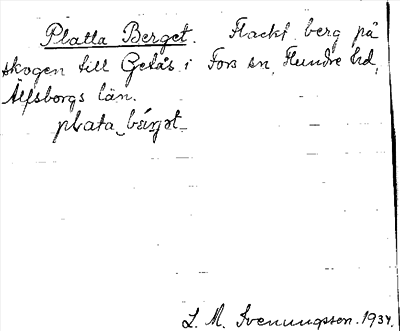 Platta Berget. Flackt berg på
skogen till Getås i Fors sn, Flundre hd,
Älfsborgs län.
plata bärjət
L. M. Svenungsson. 1934.